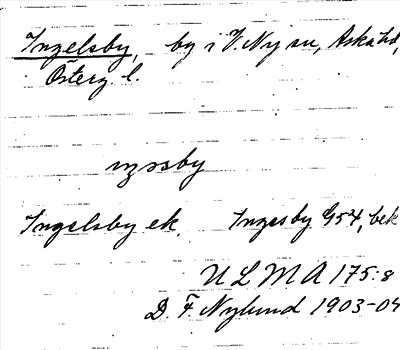 Ingelsby, by i V. Ny sn, Aska hd,
Österg. l.
Ingelsby ek. Ingesby G54, bek
ULMA 175:8
D. F. Nylund 1903-04